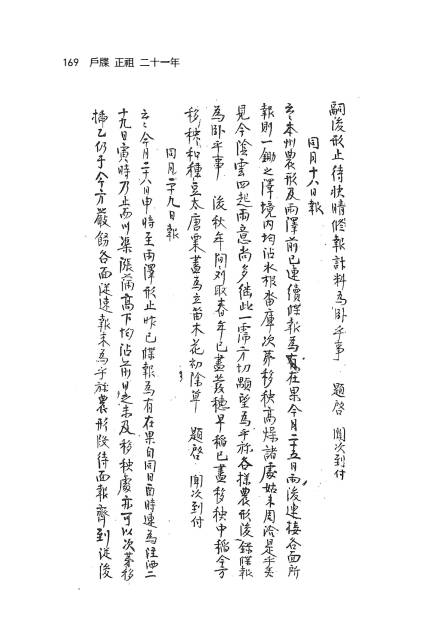 169 戶牒 正祖 二十一年
嗣後形止待快晴牒報計料爲臥乎事 題啓 聞次到付
同月十八日報
云云本州農形及雨澤前已連續牒報爲有在果今月二十五日雨後連接各面所
報則一鋤之澤境內均沾水根畓庫次第移秧高燥諸處姑未周洽是乎矣
見今陰雲四起雨意尚多繼此一霈方切顒望爲乎旀各樣農形後錄牒報
爲臥乎事 後秋牟間刈取春牟已盡發穗早稻已盡移秧中稻今方
移秧和種豆太唐粟畫爲立苗木花初除草 題啓 聞次到付
同月二十九日報
云云今月二十八日申時至雨澤形止昨已牒報爲有在果自同日酉時連爲注洒二
十九日寅時乃止而川渠漲滿高下均沾前日之未及移秧處亦可以次第移
揷乙仍于今方嚴飭各面從速報來爲乎旀農形段待面報齊到從後